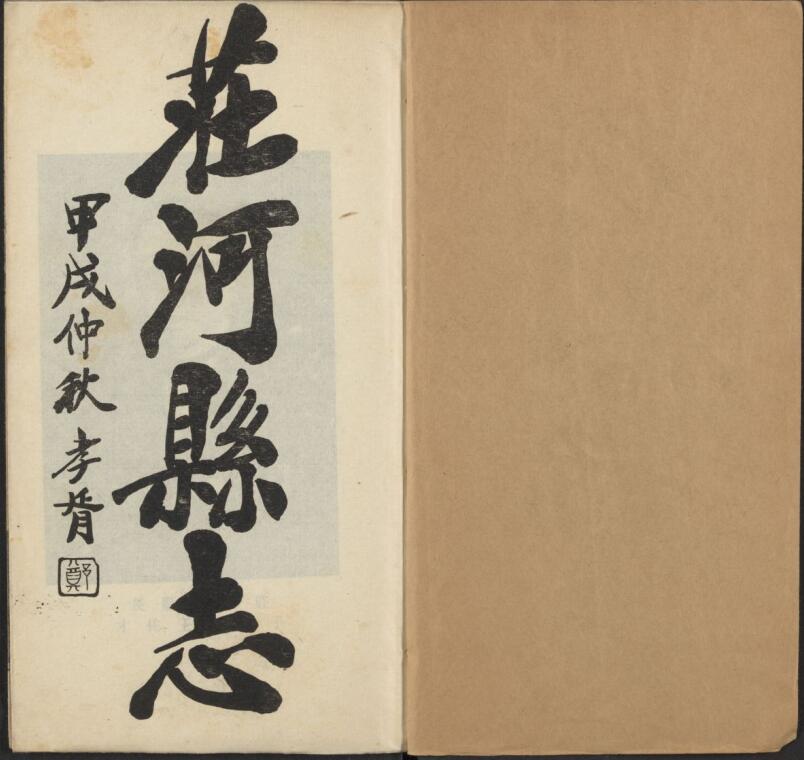 莊河縣志
甲戌仲秋孝胥
鄭